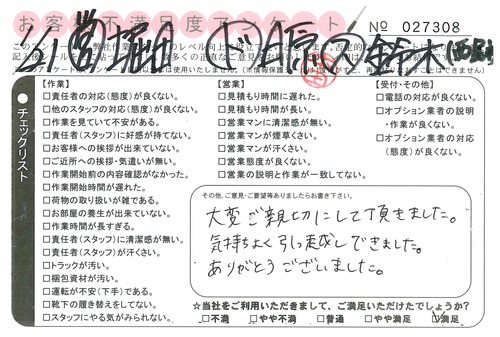 お客様不満足度アンケート
No 027308
チェックリスト
【作業】
□責任者の対応(態度)が良くない。
□他のスタッフの対応(態度)が良くない。
□作業を見ていて不安がある。
□責任者(スタッフ)に好感が持てない。
□お客様への挨拶が出来ていない。
□ご近所への挨拶・気遣いが無い。
□作業開始前の内容確認がなかった。
□作業開始時間が遅れた。
□荷物の取り扱いが雑である。
□お部屋の養生が出来ていない。
□作業時間が長すぎる。
□責任者(スタッフ)に清潔感が無い。
□責任者(スタッフ)が汗くさい。
□トラックが汚い。
□梱包資材が汚い。
□運転が不安(下手)である。
□靴下の履き替えをしてない。
□スタッフにやる気がみられない。
【営業】
□見積もり時間に遅れた。
□見積もり時間が長い。
□営業マンに清潔感が無い。
□営業マンが煙草くさい。
□営業マンが汗くさい。
□営業態度が良くない。
□営業の説明と作業が一致してない。
【受付・その他】
□電話の対応が良くない。
□オプション業者の説明
・作業が良くない。
□オプション業者の対応
(態度)が良くない。
その他、ご意見・ご要望等ありましたらお書き下さい。
大変ご親切にして頂きました。
気持ちよく引っ越しできました。
ありがとうございました。
☆当社をご利用いただきまして、ご満足いただけたでしょうか?
□不満 □やや不満 □普通 □やや満足 □満足